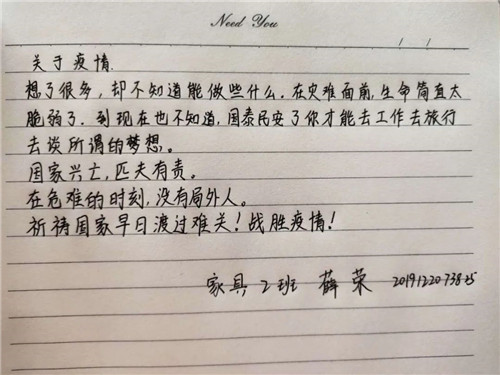 Need You
/ /
关于疫情.
想了很多，却不知道能做些什么.在灾难面前,生命简直太
脆弱了.到现在也不知道,国泰民安了你才能去工作去旅行
去谈所谓的梦想。
国家兴亡,匹夫有责。
在危难的时刻,没有局外人。
祈祷国家早日渡过难关!战胜疫情!
家具2班 薛荣 2019122073825